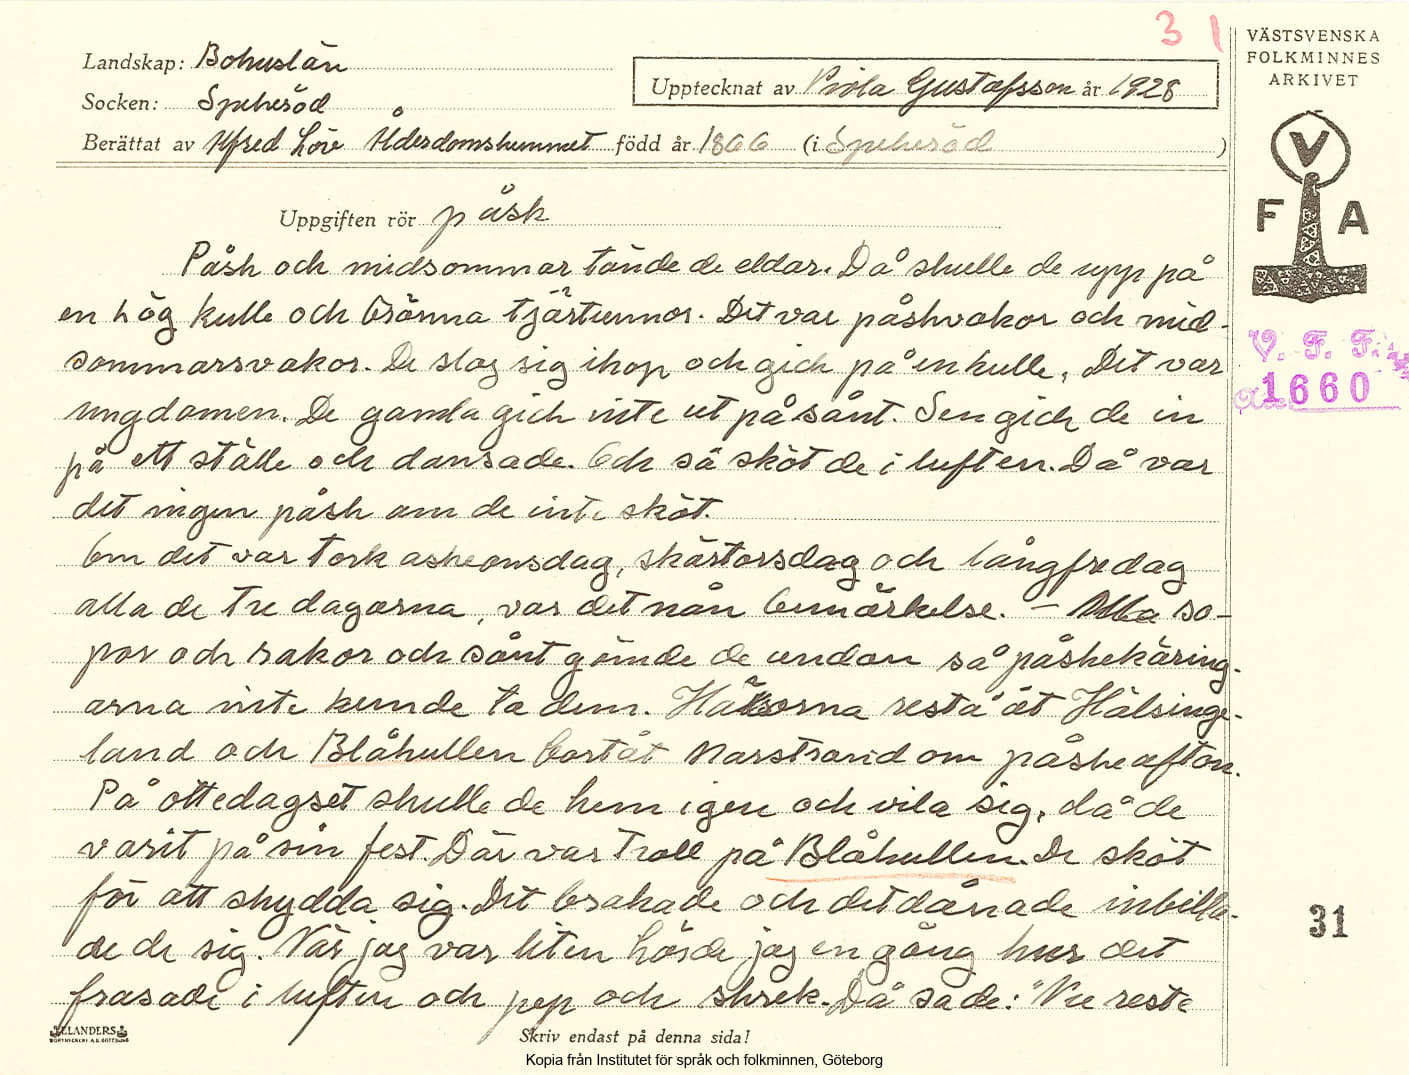 31
VÄSTSVENSKA
FOLKMINNES
ARKIVET
V
F A
V. F. F.
1660
31
Landskap: Bohuslän
Socken: Spekeröd
Upptecknat av Viola Gustafsson år 1928
Berättat av Alfred Löv Ålderdomshemmet född år 1866 (i Spekeröd )
Uppgiften rör påsk
Påsk och midsommar tände de eldar. Då skulle de upp på
en hög kulle och bränna tjärtunnor. Det var påskvakor och mid-
sommarsvakor. De slog sig ihop och gick på en kulle, Det var
ungdomen. De gamla gick inte ut på sånt. Sen gick de in
på ett ställe och dansade. Och så sköt de i luften. Då var
det ingen påsk om de inte sköt.
Om det var tork askeonsdag, skärtorsdag och långfredag
alla de tre dagarna, var det nån bemärkelse. – Alla so-
por och rakor och sånt gömde de undan så påskekäring-
arna inte kunde ta dem. Häxorna resta åt Hälsinge-
land och Blåkullen bortåt Marstrand om påskeafton.
På ottedagset skulle de hem igen och vila sig, då de
varit på sin fest. Där var troll på Blåkullen. De sköt
för att skydda sig. Det brakade och det dånade inbilla-
de de sig. När jag var liten hörde jag en gång hur det
frasade i luften och pep och skrek. Då sade: "Nu reste
Skriv endast på denna sida!
Kopia från Institutet för språk och folkminnen, Göteborg